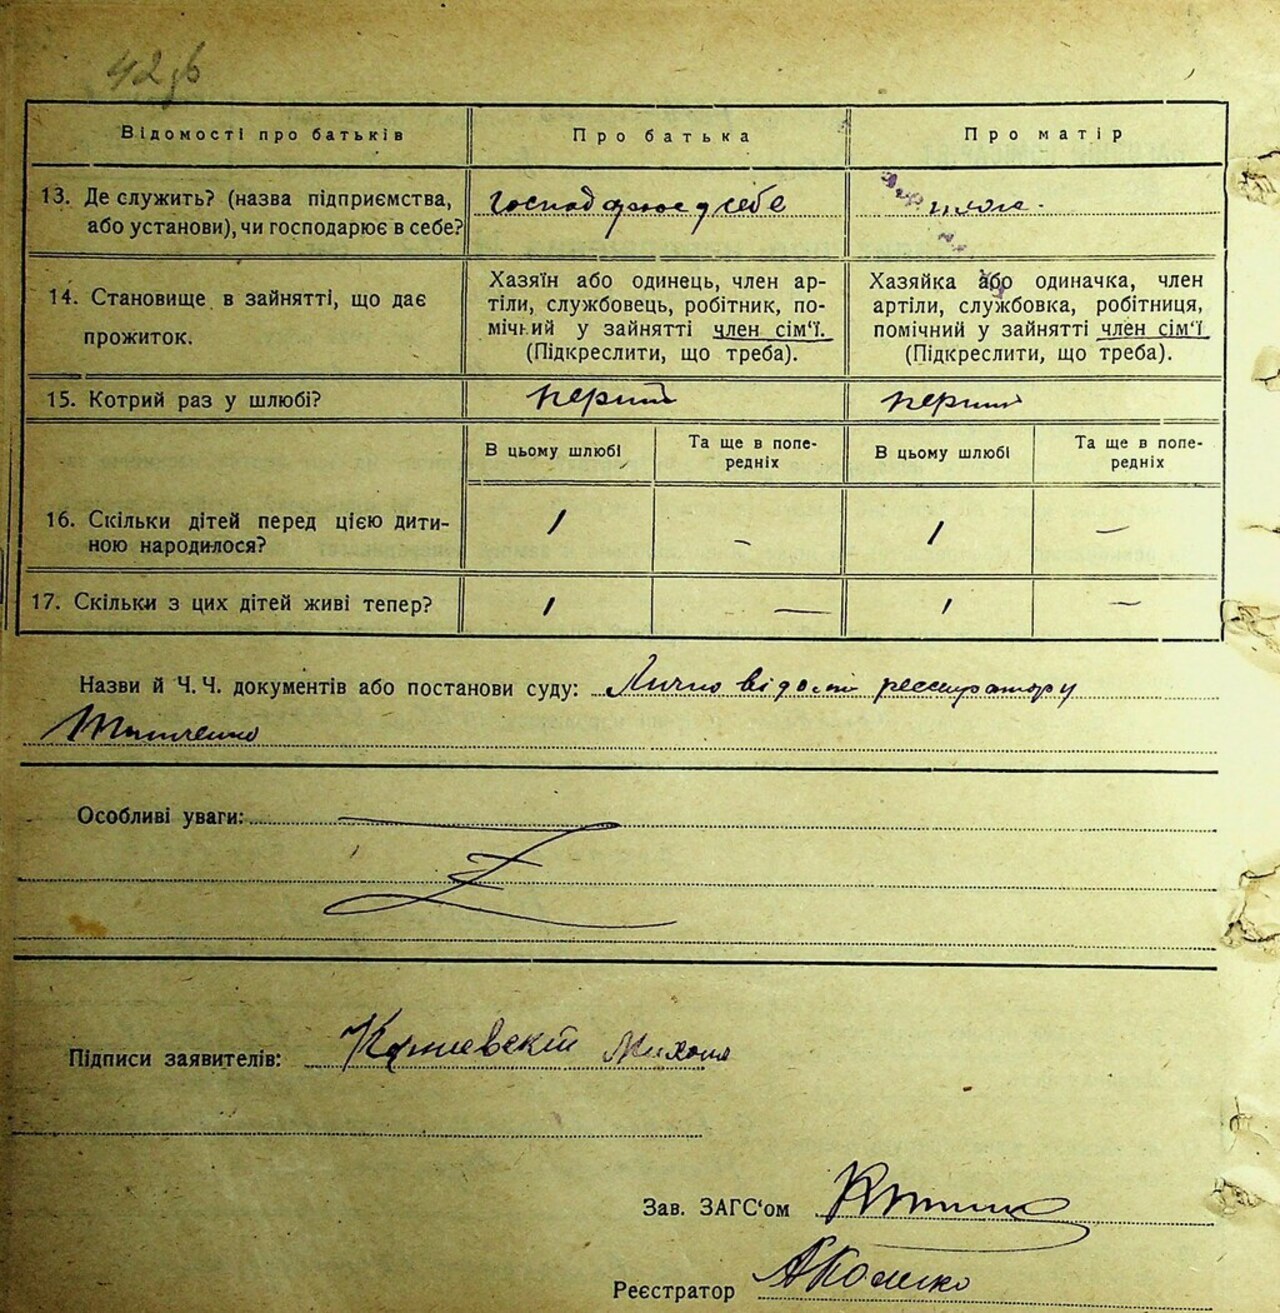 42зв
Відомості про батьків Про батька Про матір
13. Де служить? (назва підприємства, або установи), чи господарює в себе?
господарює у себе
14. Становище в зайнятті, що дає прожиток.
Хазяїн або одинець, член ар-
тіли, службовець, робітник, по-
мічний у зайнятті член сім'ї.
(Підкреслити, що треба).
Хазяйка або одиначка, член
артіли, службовка, робітниця,
помічний у зайнятті член сім'ї
(Підкреслити, що треба).
15. Котрий раз у шлюбі? перший перший
В цьому шлюбі Та ще в попе-редніх В цьому шлюбі Та ще в попе-редніх
16. Скільки дітей перед цією дити-
ною народилося? 1 — 1 —
17. Скільки з цих дітей живі тепер? 1 — 1 —
Назви й Ч. Ч. документів або постанови суду: Лично відомі
Особливі уваги:
Підписи заявителів:
Зав. ЗАГС'ом
Реєстратор